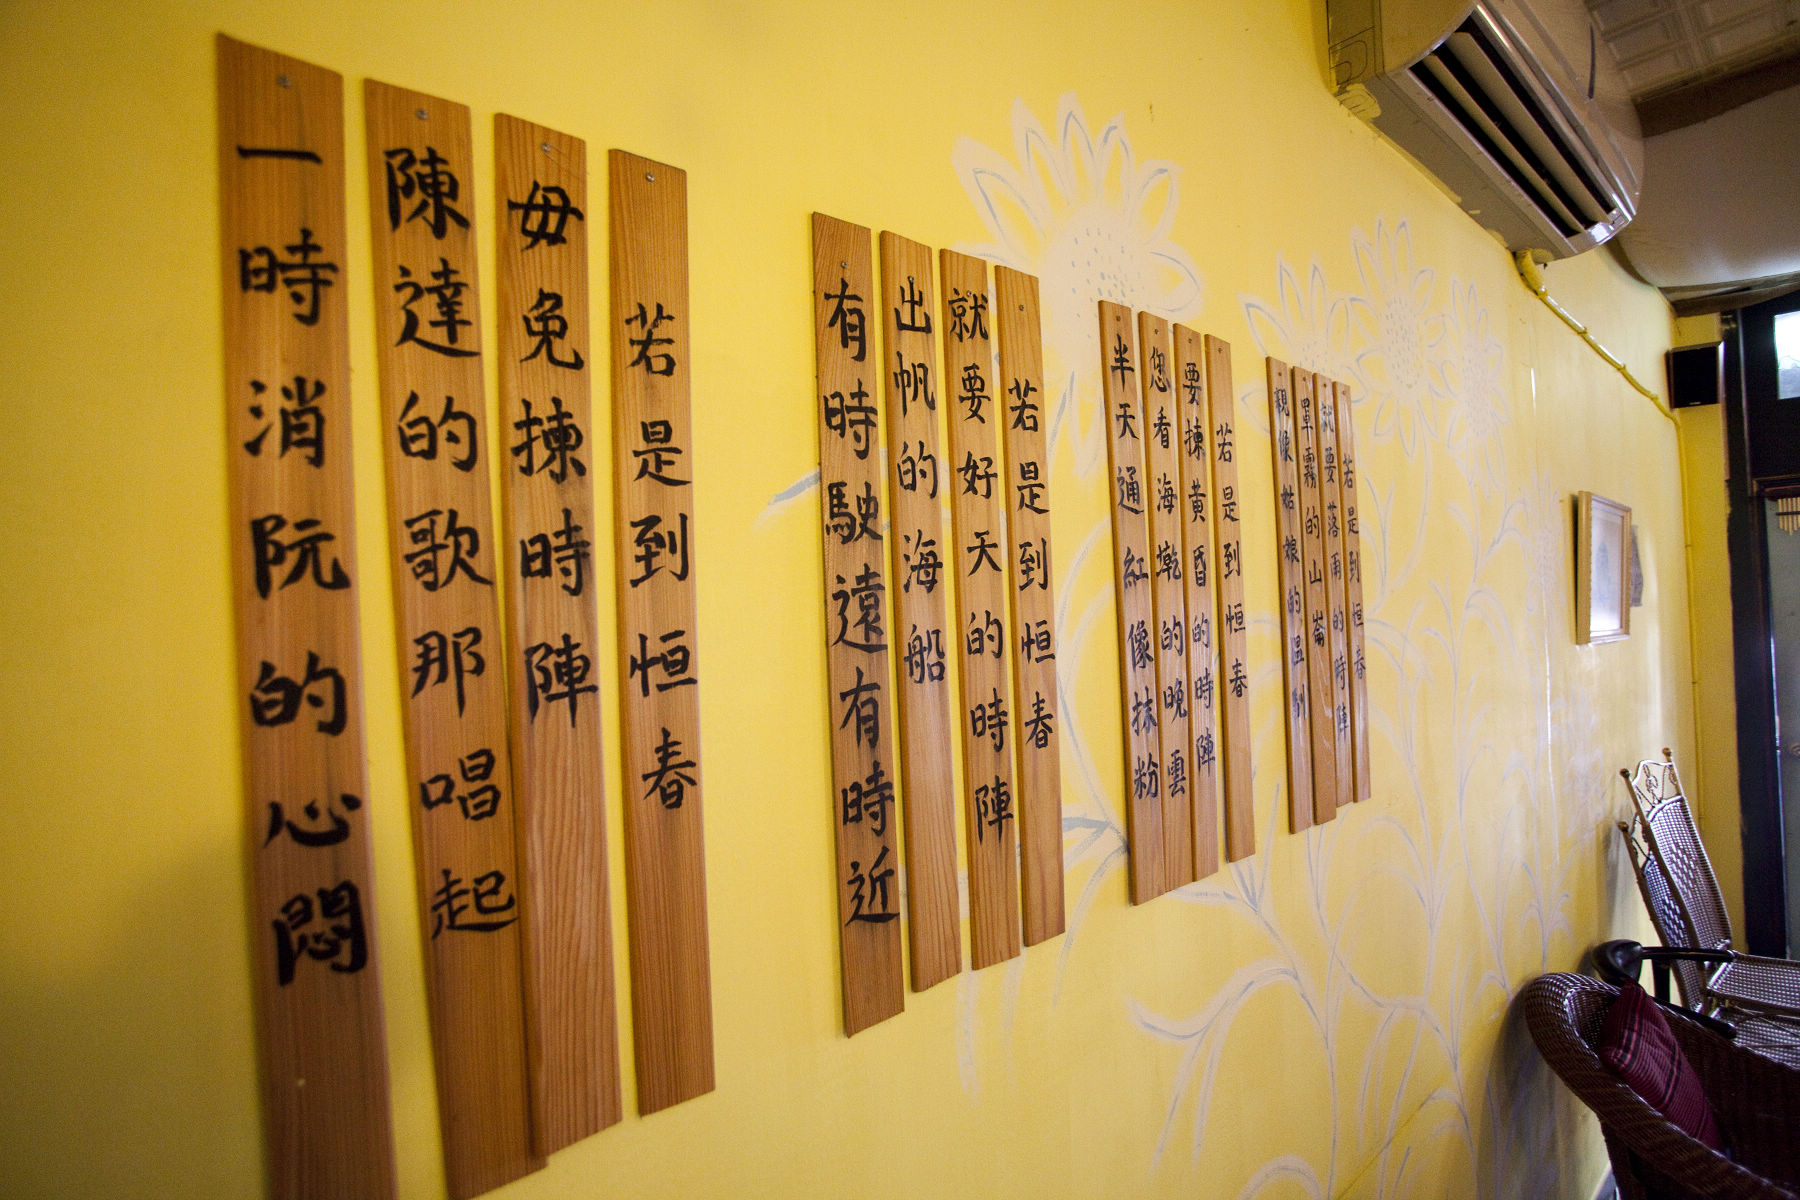 若是到恒春
就要落雨的時陣
罩霧的山崙
親像姑娘的溫馴
若是到恒春
要揀黃昏的時陣
您看海墘的晚雲
半天通紅像抹粉
若是到恒春
就要好天的時陣
出帆的海船
有時駛遠有時近
若是到恒春
毋免揀時陣
陳達的歌那唱起
一時消阮的心悶